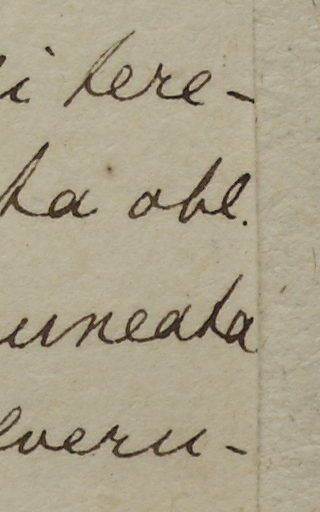 i tere-
ta obl.
uneata
lveru-